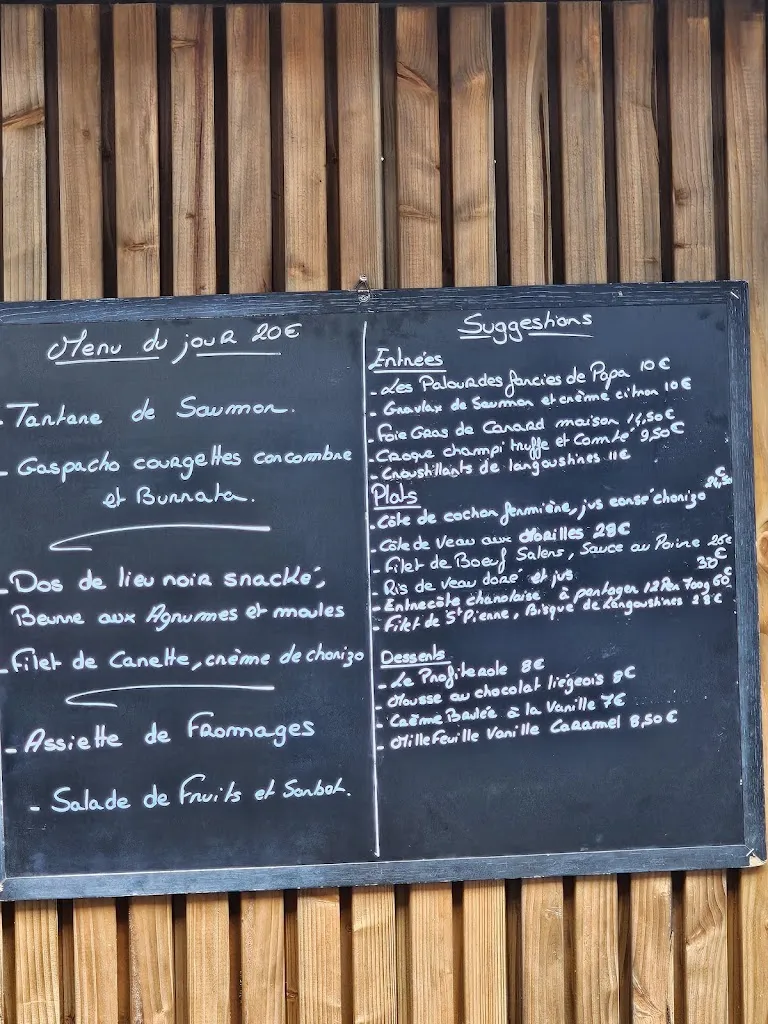 Menu du jour 20€
- Tartare de Saumon.
- Gaspacho courgettes concombre
et Burrata.
- Dos de lieu noir snacké,
Beurre aux Agrumes et moules
- Filet de Canette, crème de chorizo
- Assiette de Fromages
- Salade de Fruits et Sorbet.
Suggestions
Entrées
- Les Palourdes farcies de Papa 10€
- Gravlax de Saumon et crème citron 10€
- Foie Gras de Canard maison 14,50€
- Croque champi truffe et Comté 9,50€
- Croustillants de langoustines 11€
Plats
- Côte de cochon fermière, jus corsé chorizo 24,50€
- Côte de Veau aux Morilles 28€
- Filet de Boeuf Salers, Sauce au Poivre 26€
- Ris de veau doré et jus 30€
- Entrecôte charolaise à partager 1,2 Per 700g 60€
- Filet de St Pierre, Bisque de Langoustines 28€
Desserts
- Le Profiterole 8€
- Mousse au chocolat liégeois 8€
- Crème Brulée à la Vanille 7€
- MilleFeuille Vanille Caramel 8,50€